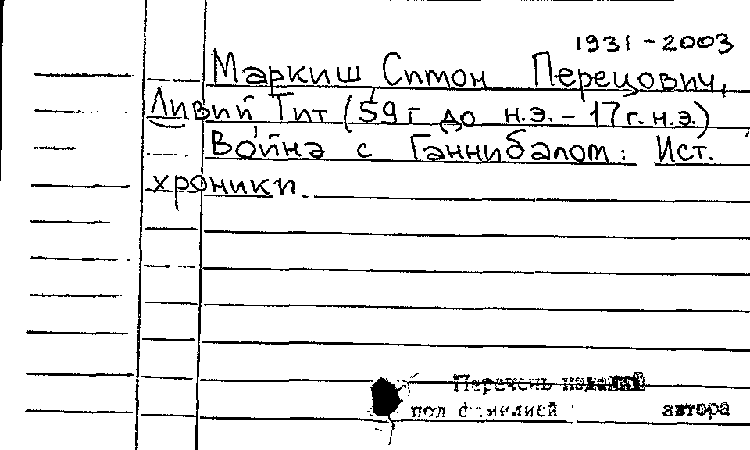 1931-2003
Маркиш, Симон Перецович,
Ливий, Тит (59 г до н.э. - 17 г. н.э.)
Война с Ганнибалом: Ист.
хроники.
Перечень изданий
под фамилией автора